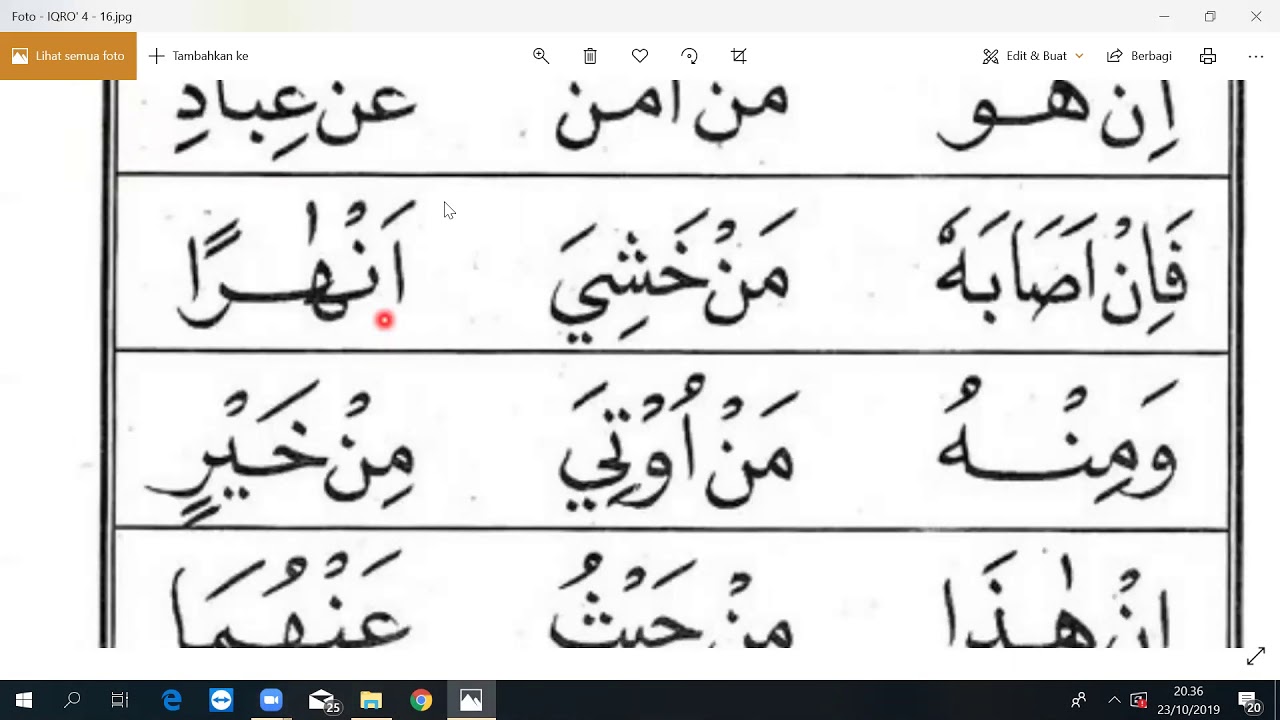 Foto - IQRO' 4 - 16.jpg
Lihat semua foto Tambahkan ke Edit & Buat Berbagi
اِن هو من امن عن عِبادِ
فَاِنْ اَصَابَهٗ مَنْ خَشِيَ اَنْهٰرًا
وَمِنْهُ مَنْ اُوْتِيَ مِنْ خَيْرٍ
اِنْ هٰذَا مِنْ حَيْثُ عَنْهُمَا
25 20.36
23/10/2019 20